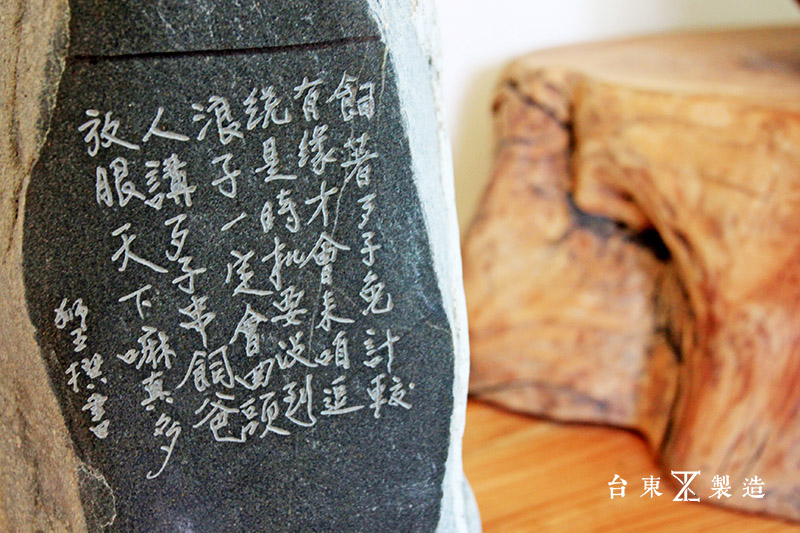 飼著歹子免計較
有緣才會來咱這
統是時批要淡到
浪子一定會回頭
人講歹子串飼爸
放眼天下嘛真多
撰書
台東 製造